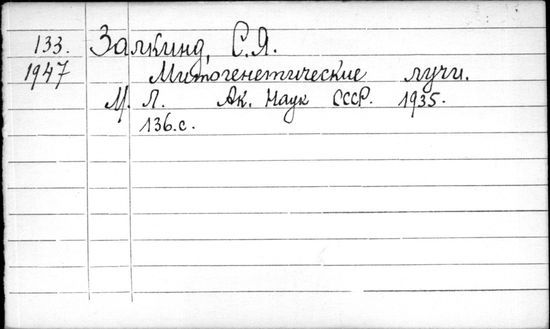 133. Залкинд, С.Я.
1947 Митогенетические лучи.
М. Л. Ак. Наук СССР. 1935.
136.с.